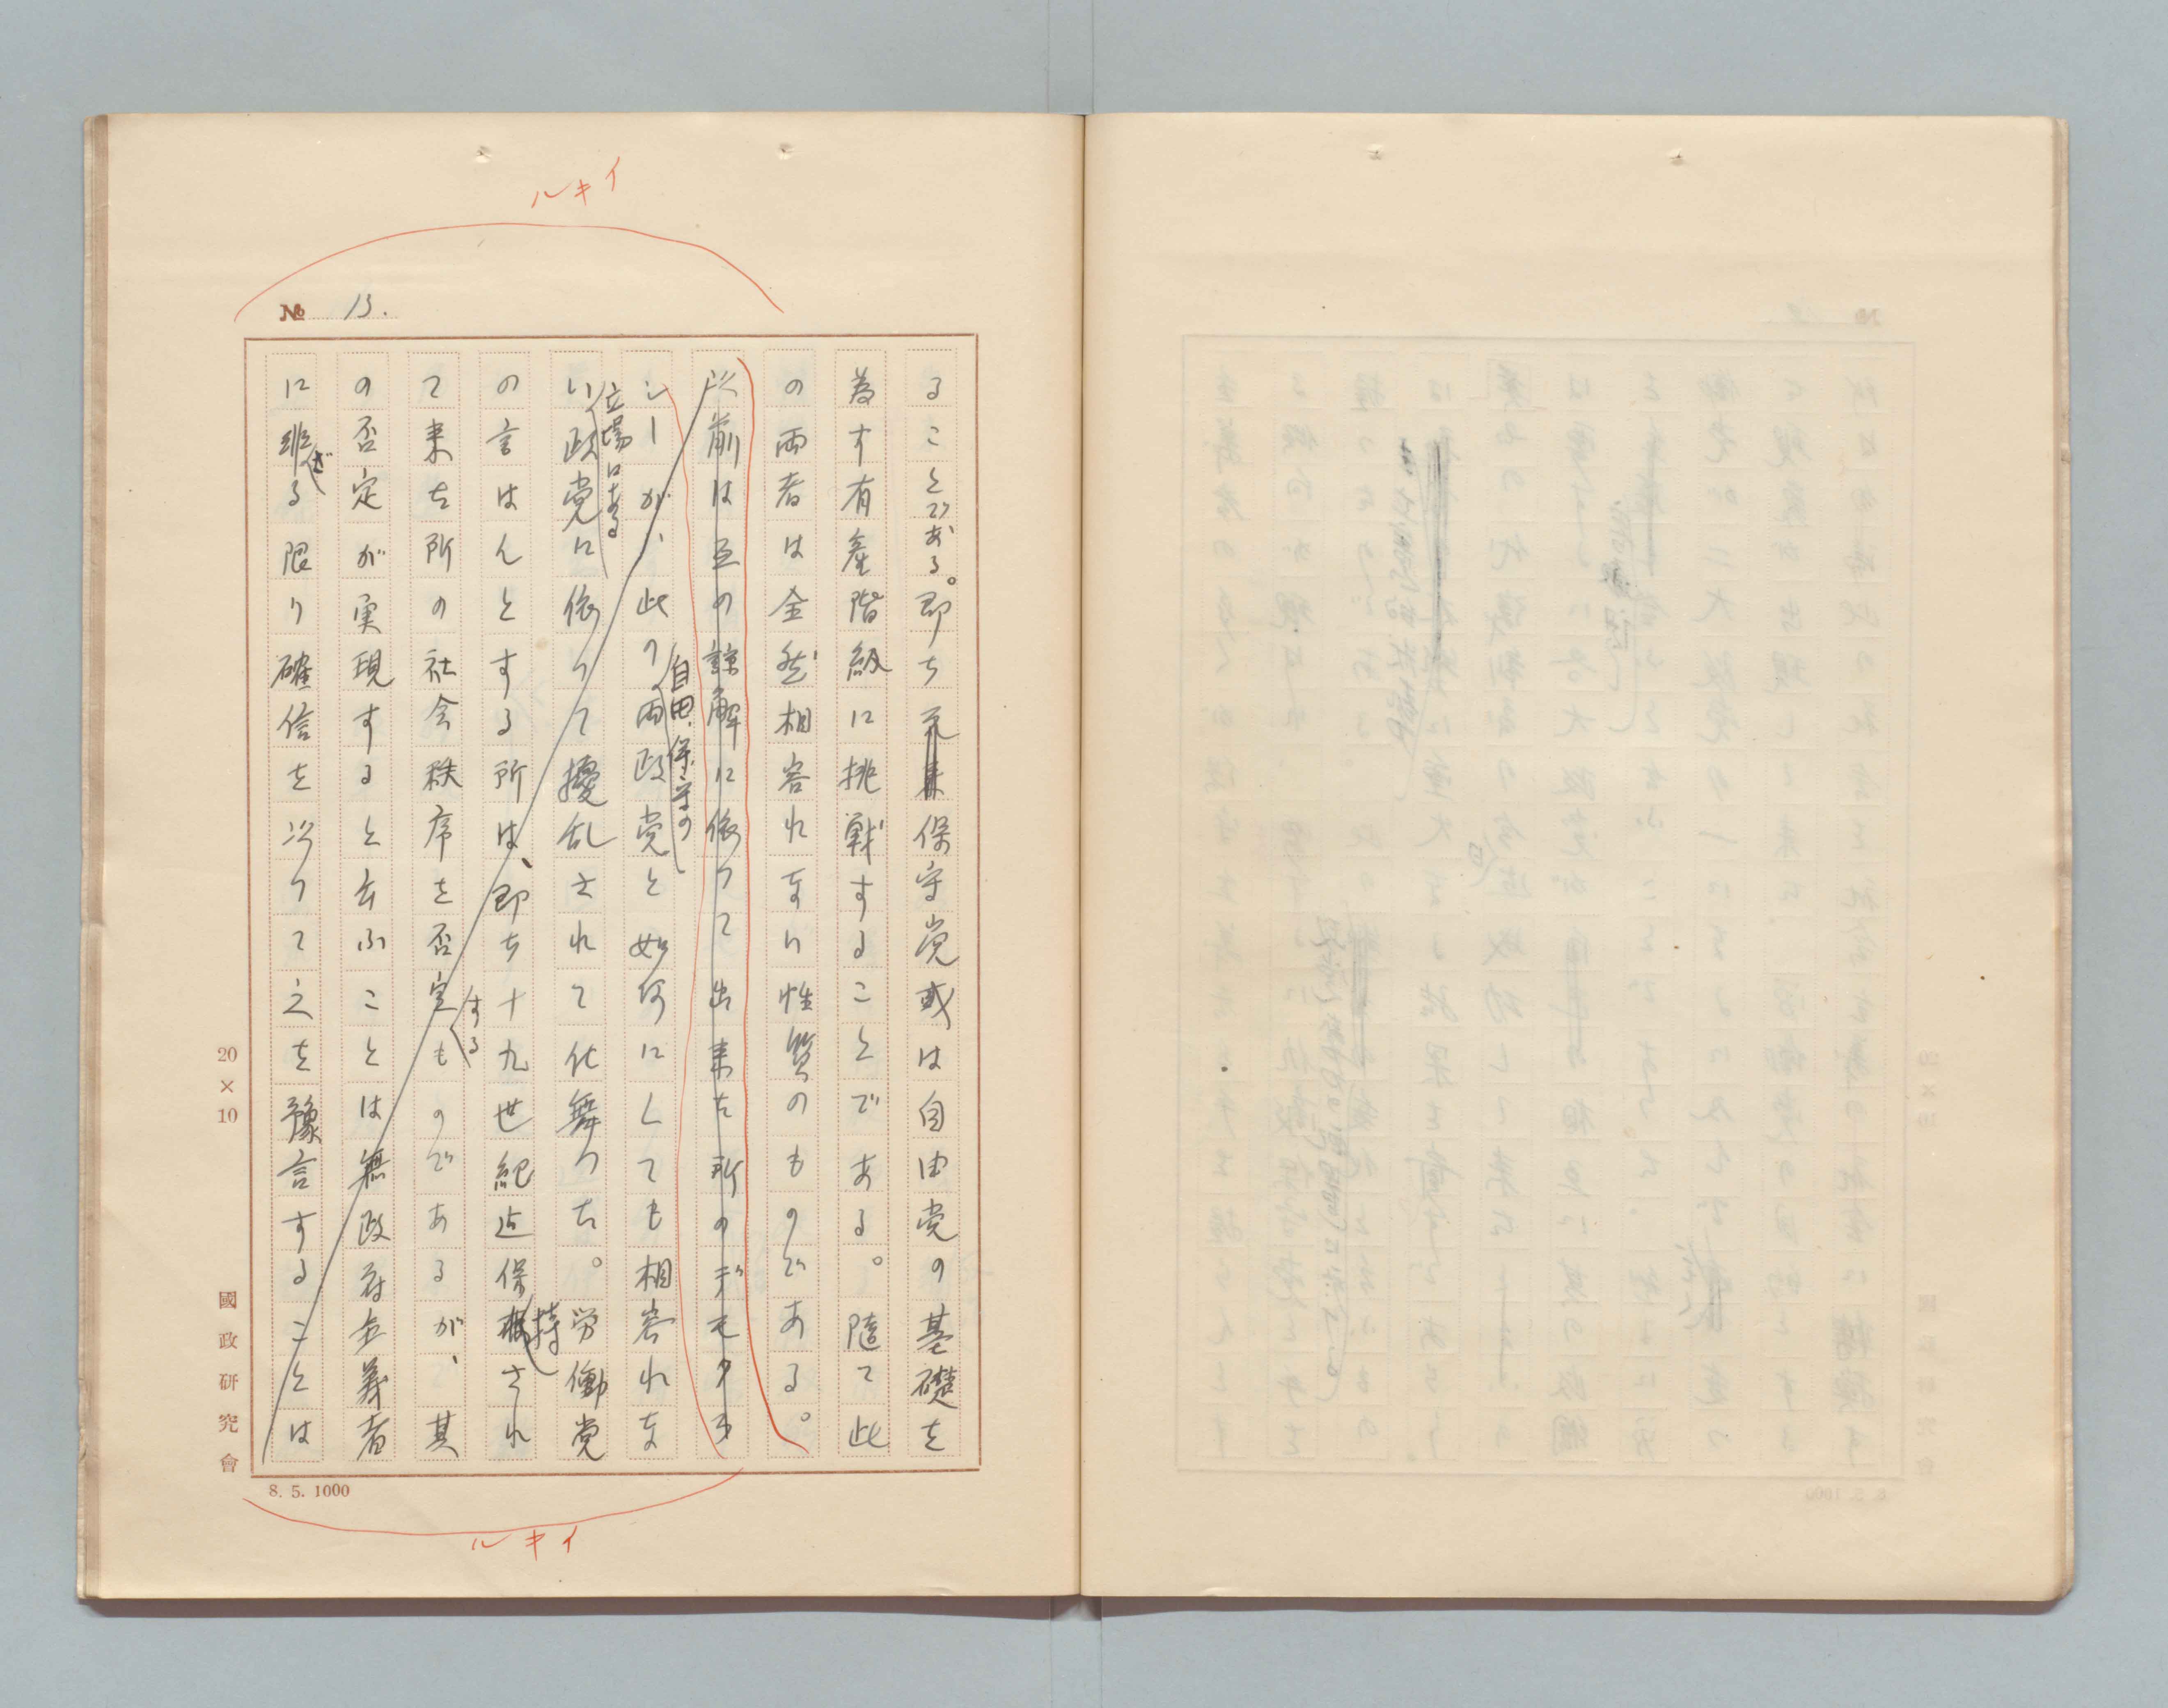 ルキイ
№ 13.
ることである。即ち保守党或は自由党の基礎を
為す有産階級に挑戦することである。随て此
の両者は全然相容れない性質のものである。
以前は互の諒解に依つて出来た所のデモクラ
シーが、此の自由、保守の両政党と如何にしても相容れな
い立場にある政党に依つて擾乱されて仕舞つた。労働党
の言はんとする所は、即ち十九世紀迄保持され
て来た所の社会秩序を否定するものであるが、其
の否定が実現すると云ふことは無政府主義者
に非ざる限り確信を以つて之を豫言することは
20×10
國政研究會
8. 5. 1000
ルキイ